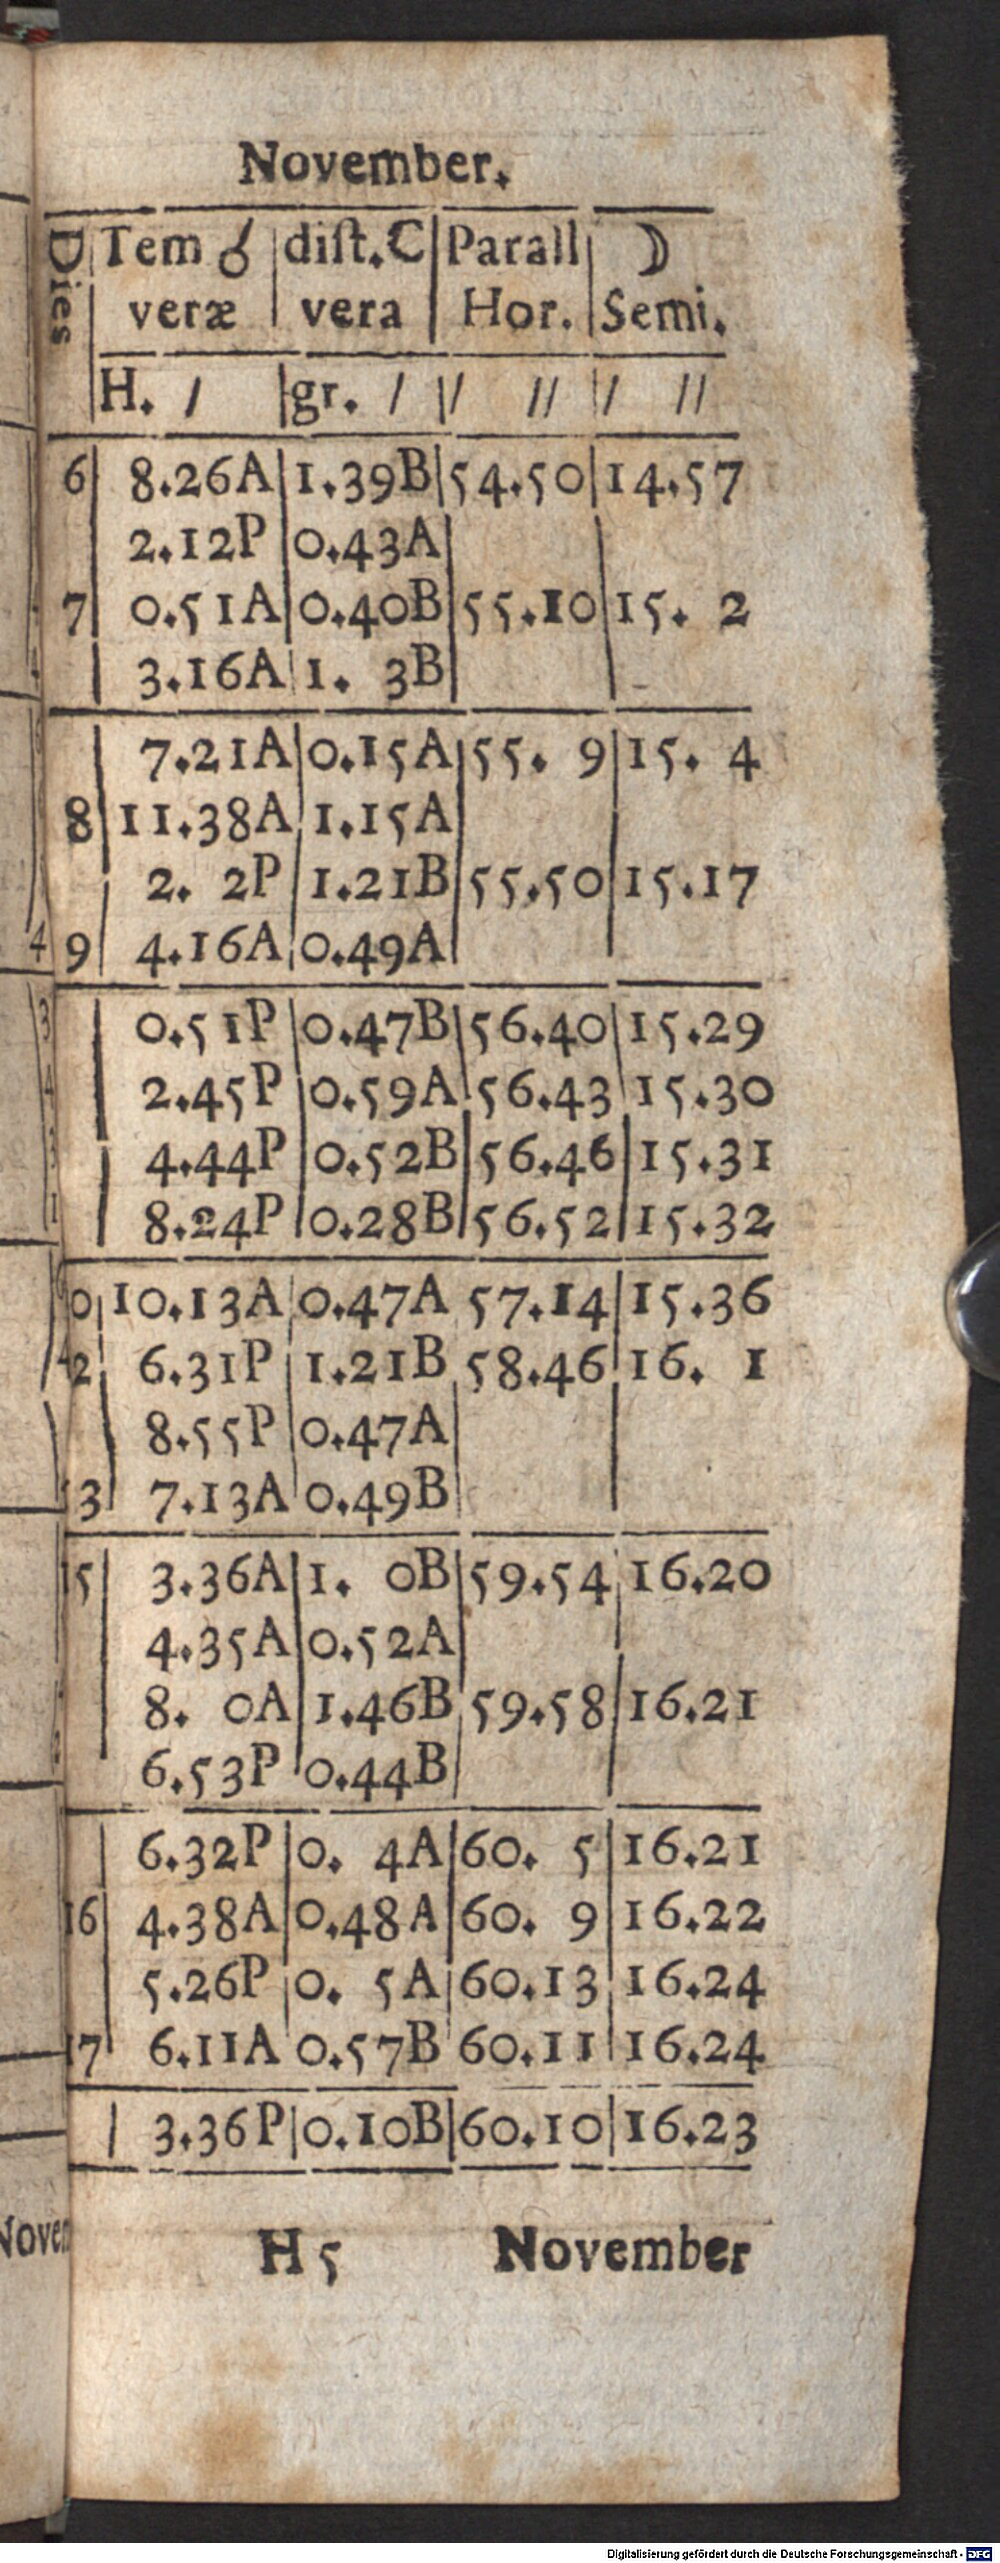 November.
Dies | Tem ☌ | dist. C | Parall | ☽
veræ | vera | Hor. | Semi.
H. / | gr. / | / // | / //
6 | 8.26A | 1.39B | 54.50 | 14.57
2.12P | 0.43A
7 | 0.51A | 0.40B | 55.10 | 15. 2
3.16A | 1. 3B
7.21A | 0.15A | 55. 9 | 15. 4
8 | 11.38A | 1.15A
2. 2P | 1.21B | 55.50 | 15.17
9 | 4.16A | 0.49A
0.51P | 0.47B | 56.40 | 15.29
2.45P | 0.59A | 56.43 | 15.30
4.44P | 0.52B | 56.46 | 15.31
8.24P | 0.28B | 56.52 | 15.32
0 | 10.13A | 0.47A | 57.14 | 15.36
12 | 6.31P | 1.21B | 58.46 | 16. 1
8.55P | 0.47A
13 | 7.13A | 0.49B
15 | 3.36A | 1. 0B | 59.54 | 16.20
4.35A | 0.52A
8. 0A | 1.46B | 59.58 | 16.21
6.53P | 0.44B
6.32P | 0. 4A | 60. 5 | 16.21
16 | 4.38A | 0.48A | 60. 9 | 16.22
5.26P | 0. 5A | 60.13 | 16.24
17 | 6.11A | 0.57B | 60.11 | 16.24
3.36P | 0.10B | 60.10 | 16.23
H5 November
Digitalisierung gefördert durch die Deutsche Forschungsgemeinschaft - DFG